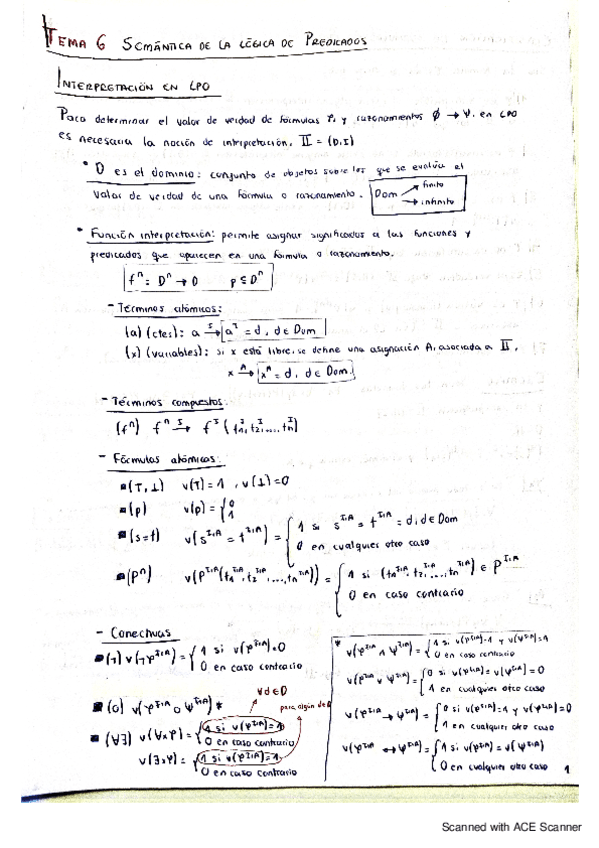 TEMA 6 SEMÁNTICA DE LA LÓGICA DE PREDICADOS
INTERPRETACIÓN EN LPO
Para determinar el valor de verdad de fórmulas φ, y razonamientos ∅ → ψ, en LPO
es necesaria la noción de intrpretación, II = (D,I)
• D es el dominio: conjunto de objetos sobre los que se evalúa el
valor de verdad de una fórmula o razonamiento. Dom → finito
→ infinito
• Función interpretación: permite asignar significados a las funciones y
predicados que aparecen en una fórmula o razonamiento.
fⁿ: Dⁿ → D p ⊆ Dⁿ
- Términos atómicos:
(a) (ctes): a →
= d, d ∈ Dom
(x) (variables): si x está libre, se define una asignación A, asociada a II,
x →ᴬ xᴬ = d, d ∈ Dom
- Términos compuestos:
(fⁿ) fⁿ →
(t₁ᴵ, t₂ᴵ, ..., tₙᴵ)
- Fórmulas atómicas:
■ (T, ⊥) v(T)=1 , v(⊥)=0
■ (p) v(p) = { 0
1
■ (s=t) v(sᴵ'ᴬ = tᴵ'ᴬ) = { 1 si sᴵ'ᴬ = tᴵ'ᴬ = d, d ∈ Dom
0 en cualquier otro caso
■ (Pⁿ) v(Pᴵ'ᴬ(t₁ᴵ'ᴬ, t₂ᴵ'ᴬ, ..., tₙᴵ'ᴬ)) = { 1 si (t₁ᴵ'ᴬ, t₂ᴵ'ᴬ, ..., tₙᴵ'ᴬ) ∈ Pᴵ'ᴬ
0 en caso contrario
- Conectivas
■ (¬) v(¬φᴵ'ᴬ) = { 1 si v(φᴵ'ᴬ)=0
0 en caso contrario
■ (o) v(φᴵ'ᴬ o ψᴵ'ᴬ) *
∀d∈D
para algún d∈D
■ (∀∃) v(∀xφ) = { 1 si v(φᴵ'ᴬ)=1
0 en caso contrario
v(∃xφ) = { 1 si v(φᴵ'ᴬ)=1
0 en caso contrario
* v(φᴵ'ᴬ ∧ ψᴵ'ᴬ) = { 1 si v(φᴵ'ᴬ)=1 y v(ψᴵ'ᴬ)=1
0 en caso contrario
v(φᴵ'ᴬ ∨ ψᴵ'ᴬ) = { 0 si v(φᴵ'ᴬ) = v(ψᴵ'ᴬ) = 0
1 en cualquier otro caso
v(φᴵ'ᴬ → ψᴵ'ᴬ) = { 0 si v(φᴵ'ᴬ)=1 y v(ψᴵ'ᴬ)=0
1 en cualquier otro caso
v(φᴵ'ᴬ ↔ ψᴵ'ᴬ) = { 1 si v(φᴵ'ᴬ) = v(ψᴵ'ᴬ)
0 en cualquier otro caso
1
Scanned with ACE Scanner